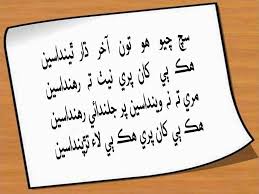 سچ چيو هو تون آخر ڌار ٿينداسين
هڪ ٻي کان پري نيٺ تہ رهنداسين
مري تہ نہ وينداسين پر جلندائي رهنداسين
هڪ ٻي کان پري هڪ ٻي لاء تڙپنداسين